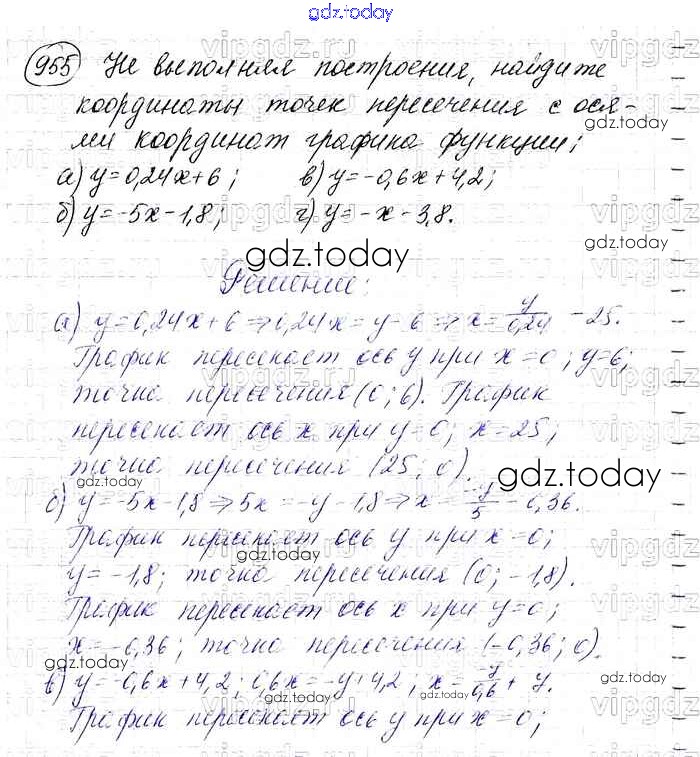 gdz.today
955 Не выполняя построения, найдите
координаты точек пересечения с ося-
ми координат графика функции:
а) y=0,24x+6; в) y=-0,6x+4,2;
б) y=-5x-1,8; г) y=-x-3,8.
gdz.today
Решение:
а) y=0,24x+6⇒0,24x=y-6⇒x=y/0,24 -25.
График пересекает ось y при x=0; y=6;
точка пересечения (0; 6). График
пересекает ось x при y=0; x=25;
точка пересечения (25; 0).
gdz.today
б) y=-5x-1,8⇒5x=-y-1,8⇒x=-y/5-0,36.
График пересекает ось y при x=0;
y=-1,8; точка пересечения (0; -1,8).
График пересекает ось x при y=0;
x=-0,36; точка пересечения (-0,36; 0).
gdz.today gdz.today
в) y=-0,6x+4,2; 0,6x=-y+4,2; x=-y/0,6+ 7.
gdz.today gdz.today gdz.today
График пересекает ось y при x=0;